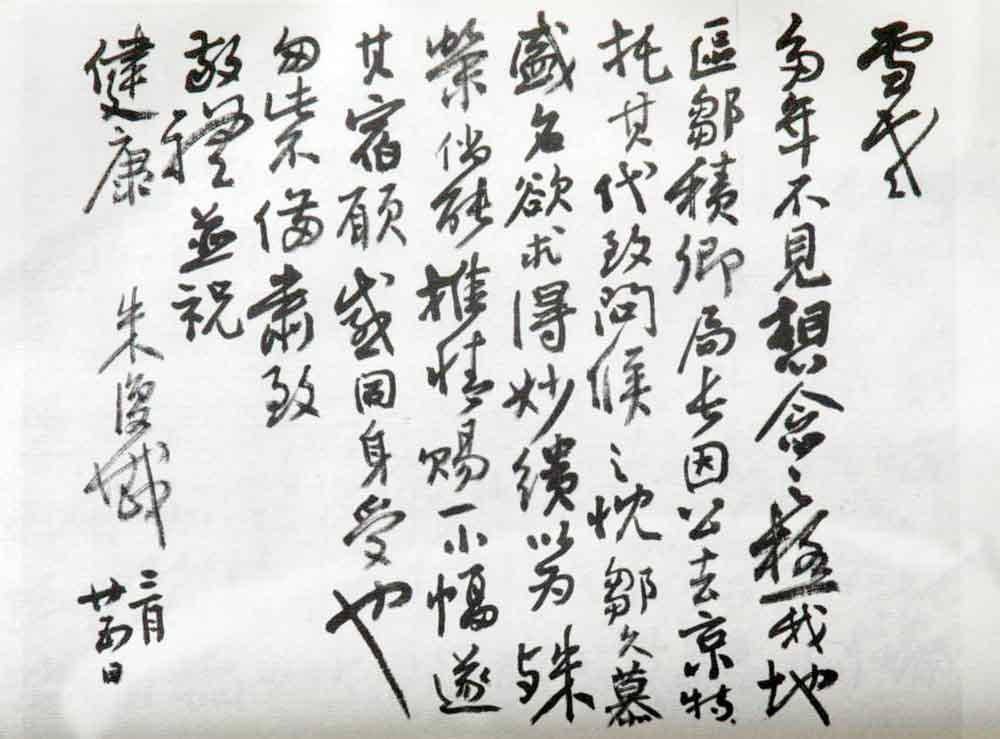 雪老
多年不見想念之極我地
區鄒積卿局長因公去京特
托其代致問候之忱鄒久慕
盛名欲求得妙繢以为殊
榮倘能推情賜一小幅遂
其宿願感同身受也
匆柴不備肅致
敬禮並祝
健康
朱復戡
二月
廿五日